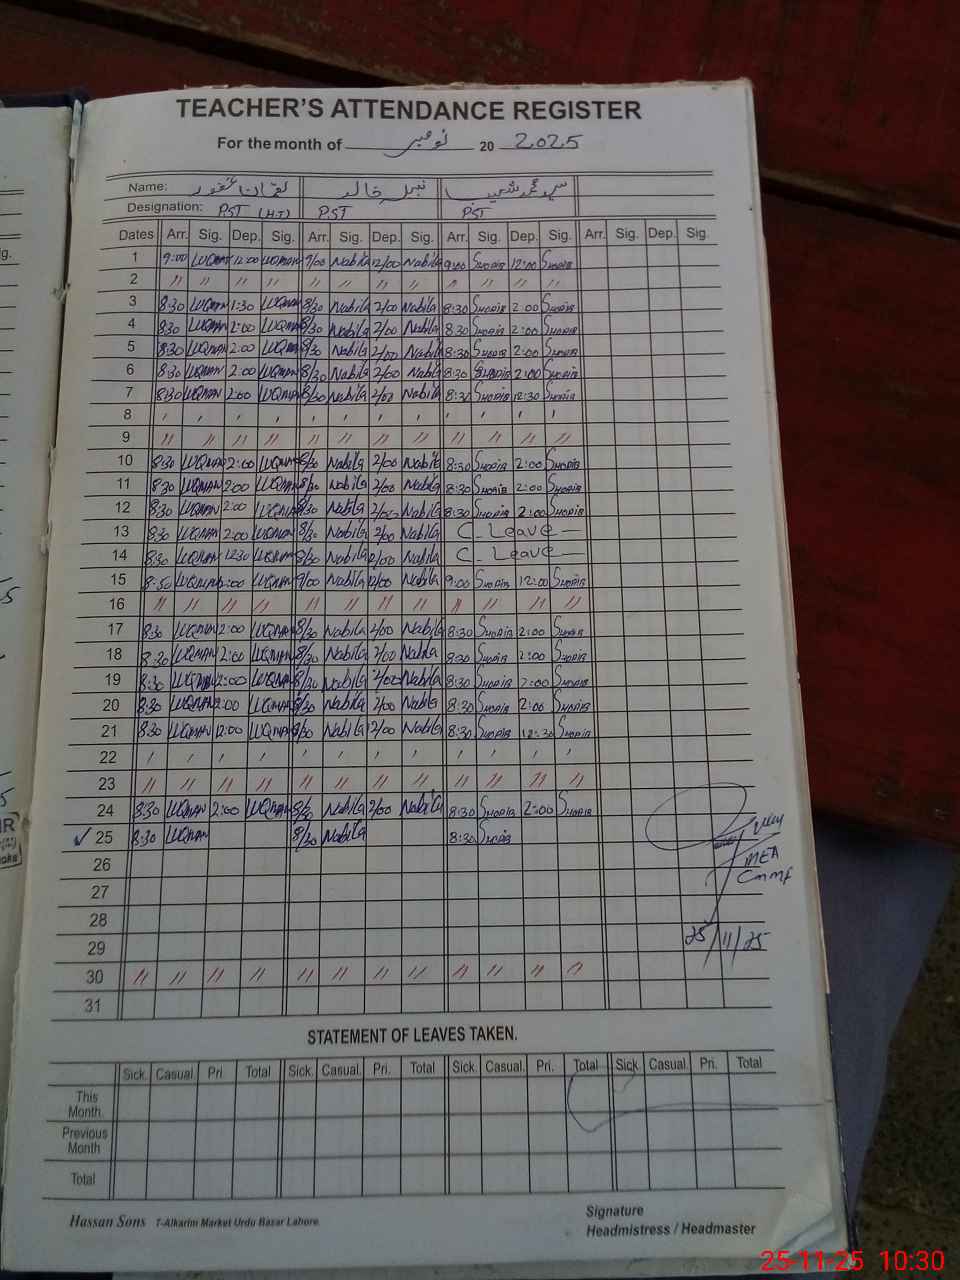 TEACHER'S ATTENDANCE REGISTER
For the month of نومبر 20 2025
Name: لقمان غفور نبیلہ خالد سید محمد شعیب
Designation: PST (H.T) PST PST
Dates Arr. Sig. Dep. Sig. Arr. Sig. Dep. Sig. Arr. Sig. Dep. Sig. Arr. Sig. Dep. Sig.
1 9:00 LUQMAN 12:00 LUQMAN 9/00 Nabila 12/00 Nabila 9:00 SHOAIB 12:00 SHOAIB
2 " " " " " " " " " " " "
3 8:30 LUQMAN 1:30 LUQMAN 8/30 Nabila 2/00 Nabila 8:30 SHOAIB 2:00 SHOAIB
4 8:30 LUQMAN 2:00 LUQMAN 8/30 Nabila 2/00 Nabila 8:30 SHOAIB 2:00 SHOAIB
5 8:30 LUQMAN 2:00 LUQMAN 8/30 Nabila 2/00 Nabila 8:30 SHOAIB 2:00 SHOAIB
6 8:30 LUQMAN 2:00 LUQMAN 8/30 Nabila 2/00 Nabila 8:30 SHOAIB 2:00 SHOAIB
7 8:30 LUQMAN 2:00 LUQMAN 8/30 Nabila 2/00 Nabila 8:30 SHOAIB 12:30 SHOAIB
8 ' ' ' ' ' ' ' ' ' ' ' '
9 " " " " " " " " " " " "
10 8:30 LUQMAN 2:00 LUQMAN 8/30 Nabila 2/00 Nabila 8:30 SHOAIB 2:00 SHOAIB
11 8:30 LUQMAN 2:00 LUQMAN 8/30 Nabila 2/00 Nabila 8:30 SHOAIB 2:00 SHOAIB
12 8:30 LUQMAN 2:00 LUQMAN 8/30 Nabila 2/00 Nabila 8:30 SHOAIB 2:00 SHOAIB
13 8:30 LUQMAN 2:00 LUQMAN 8/30 Nabila 2/00 Nabila C. Leave
14 8:30 LUQMAN 12:30 LUQMAN 8/30 Nabila 2/00 Nabila C. Leave
15 8:30 LUQMAN LUQMAN 9/00 Nabila 12/00 Nabila 9:00 SHOAIB 12:00 SHOAIB
16 " " " " " " " " " " " "
17 8:30 LUQMAN 2:00 LUQMAN 8/30 Nabila 2/00 Nabila 8:30 SHOAIB 2:00 SHOAIB
18 8:30 LUQMAN 2:00 LUQMAN 8/30 Nabila 2/00 Nabila 8:30 SHOAIB 2:00 SHOAIB
19 8:30 LUQMAN 2:00 LUQMAN 8/30 Nabila 2/00 Nabila 8:30 SHOAIB 2:00 SHOAIB
20 8:30 LUQMAN 2:00 LUQMAN 8/30 Nabila 2/00 Nabila 8:30 SHOAIB 2:00 SHOAIB
21 8:30 LUQMAN 12:00 LUQMAN 8/30 Nabila 12/00 Nabila 8:30 SHOAIB 12:30 SHOAIB
22 ' ' ' ' ' ' ' ' ' ' ' '
23 " " " " " " " " " " " "
24 8:30 LUQMAN 2:00 LUQMAN 8/30 Nabila 2/00 Nabila 8:30 SHOAIB 2:00 SHOAIB
✓ 25 8:30 LUQMAN 8/30 Nabila 8:30 SHOAIB
26 MEA
27
28
29 25/11/25
30 " " " " " " " " " " " "
31
STATEMENT OF LEAVES TAKEN.
Sick. Casual. Pri. Total Sick. Casual. Pri. Total Sick. Casual. Pri. Total Sick. Casual. Pri. Total
This Month
Previous Month
Total
Hassan Sons 7-Alkarim Market Urdu Bazar Lahore.
Signature
Headmistress / Headmaster
25-11-25 10:30